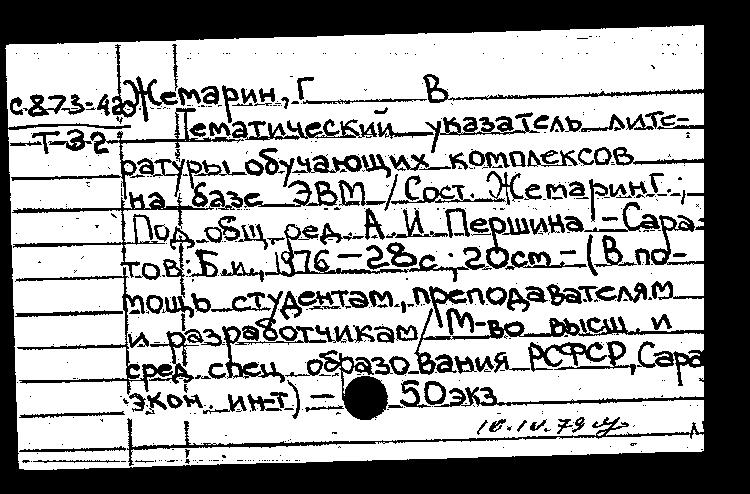 с873-420 Жемарин, Г В
Т-32 Тематический указатель лите-
ратуры обучающих комплексов
на базе ЭВМ / Сост. Жемарин Г.;
Под общ. ред. А. И. Першина. - Сара-
тов: Б.и., 1976. - 28с ; 20см. - (В по-
мощь студентам, преподавателям
и разработчикам / М-во высш. и
сред. спец. образования РСФСР, Сара
экон. ин-т) . - 50экз